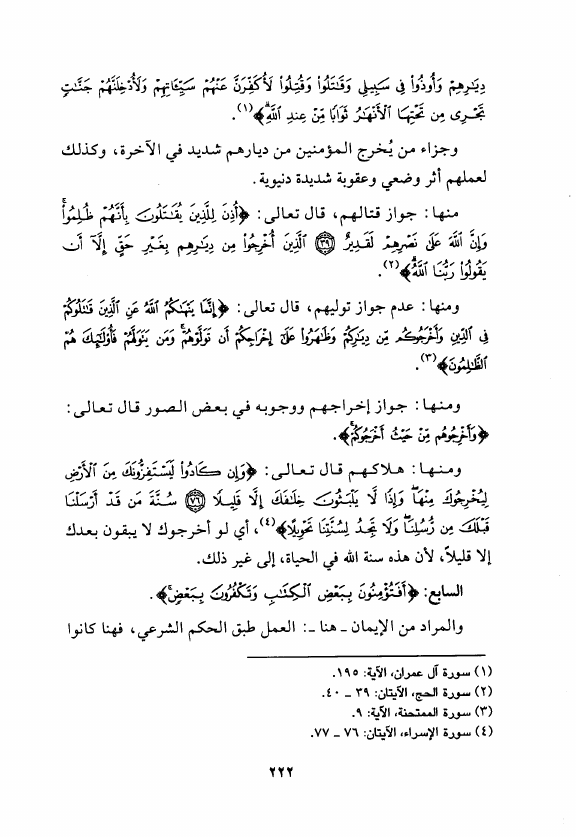 دِيَٰرِهِمْ وَأُوذُوا۟ فِى سَبِيلِى وَقَٰتَلُوا۟ وَقُتِلُوا۟ لَأُكَفِّرَنَّ عَنْهُمْ سَيِّـَٔاتِهِمْ وَلَأُدْخِلَنَّهُمْ جَنَّٰتٍ
تَجْرِى مِن تَحْتِهَا ٱلْأَنْهَٰرُ ثَوَابًا مِّنْ عِندِ ٱللَّهِ﴾(١).
وجزاء من يُخرج المؤمنين من ديارهم شديد في الآخرة، وكذلك
لعملهم أثر وضعي وعقوبة شديدة دنيوية.
منها: جواز قتالهم، قال تعالى: ﴿أُذِنَ لِلَّذِينَ يُقَٰتَلُونَ بِأَنَّهُمْ ظُلِمُوا۟ۚ
وَإِنَّ ٱللَّهَ عَلَىٰ نَصْرِهِمْ لَقَدِيرٌ ﴿٣٩﴾ ٱلَّذِينَ أُخْرِجُوا۟ مِن دِيَٰرِهِم بِغَيْرِ حَقٍّ إِلَّآ أَن
يَقُولُوا۟ رَبُّنَا ٱللَّهُ﴾(٢).
ومنها: عدم جواز توليهم، قال تعالى: ﴿إِنَّمَا يَنْهَىٰكُمُ ٱللَّهُ عَنِ ٱلَّذِينَ قَٰتَلُوكُمْ
فِى ٱلدِّينِ وَأَخْرَجُوكُم مِّن دِيَٰرِكُمْ وَظَٰهَرُوا۟ عَلَىٰٓ إِخْرَاجِكُمْ أَن تَوَلَّوْهُمْۚ وَمَن يَتَوَلَّهُمْ فَأُو۟لَٰٓئِكَ هُمُ
ٱلظَّٰلِمُونَ﴾(٣).
ومنها: جواز إخراجهم ووجوبه في بعض الصور قال تعالى:
﴿وَأَخْرِجُوهُم مِّنْ حَيْثُ أَخْرَجُوكُمْۚ﴾.
ومنها: هلاكهم قال تعالى: ﴿وَإِن كَادُوا۟ لَيَسْتَفِزُّونَكَ مِنَ ٱلْأَرْضِ
لِيُخْرِجُوكَ مِنْهَاۖ وَإِذًا لَّا يَلْبَثُونَ خِلَٰفَكَ إِلَّا قَلِيلًا ﴿٧٦﴾ سُنَّةَ مَن قَدْ أَرْسَلْنَا
قَبْلَكَ مِن رُّسُلِنَاۖ وَلَا تَجِدُ لِسُنَّتِنَا تَحْوِيلًا﴾(٤)، أي لو أخرجوك لا يبقون بعدك
إلا قليلاً، لأن هذه سنة الله في الحياة، إلى غير ذلك.
السابع: ﴿أَفَتُؤْمِنُونَ بِبَعْضِ ٱلْكِتَٰبِ وَتَكْفُرُونَ بِبَعْضٍۚ﴾.
والمراد من الإيمان ـ هنا ـ: العمل طبق الحكم الشرعي، فهنا كانوا
(١) سورة آل عمران، الآية: ١٩٥.
(٢) سورة الحج، الآيتان: ٣٩ ـ ٤٠.
(٣) سورة الممتحنة، الآية: ٩.
(٤) سورة الإسراء، الآيتان: ٧٦ ـ ٧٧.
٢٢٢